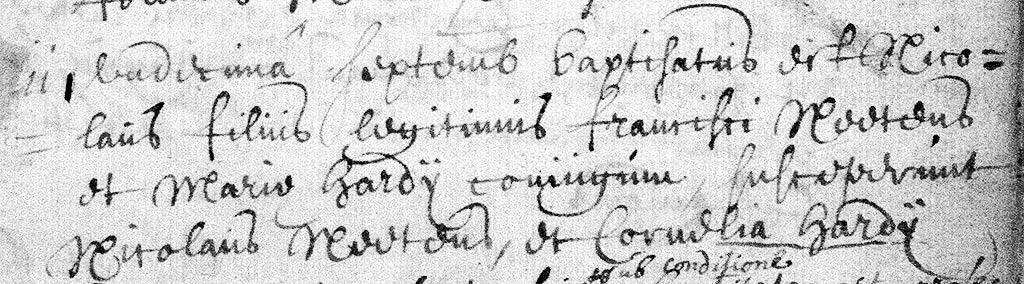 11, undecimâ septemb baptisatus est Nico=
laus filius legitimus francisci Meetens
et Marie Hardÿ coniugum, susceperunt
Nicolaus Meetens, et Cornelia Hardÿ
sub conditione